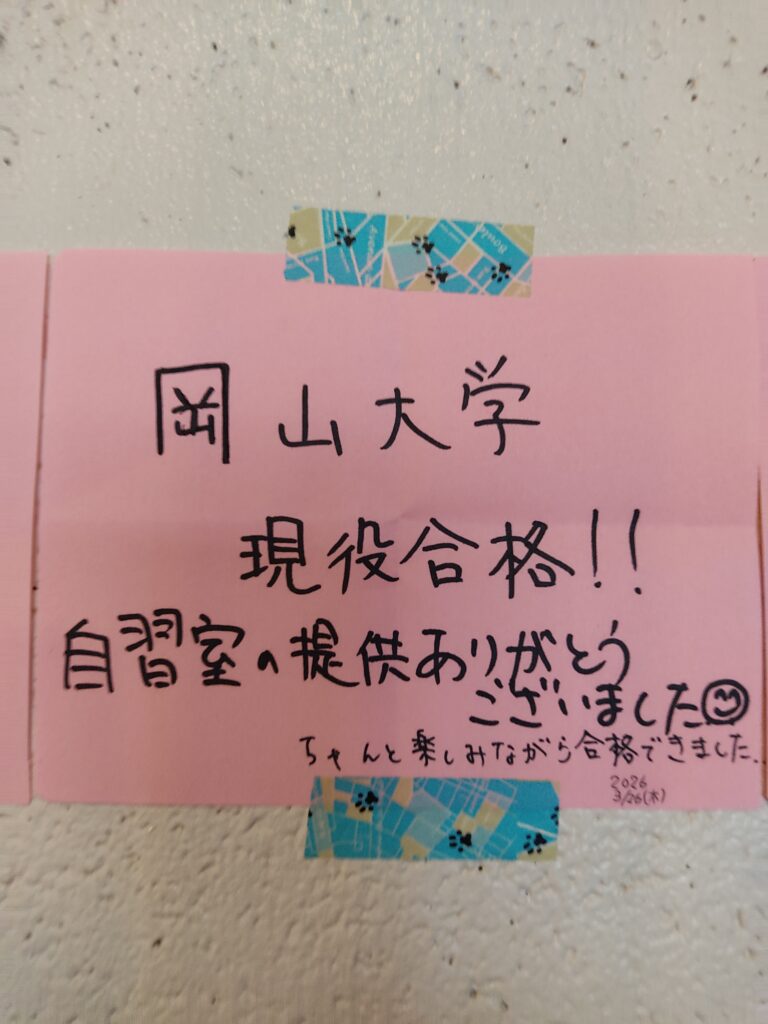 岡山大学
現役合格!!
自習室の提供ありがとう
ございました
ちゃんと楽しみながら合格できました.
2026
3/26(木)